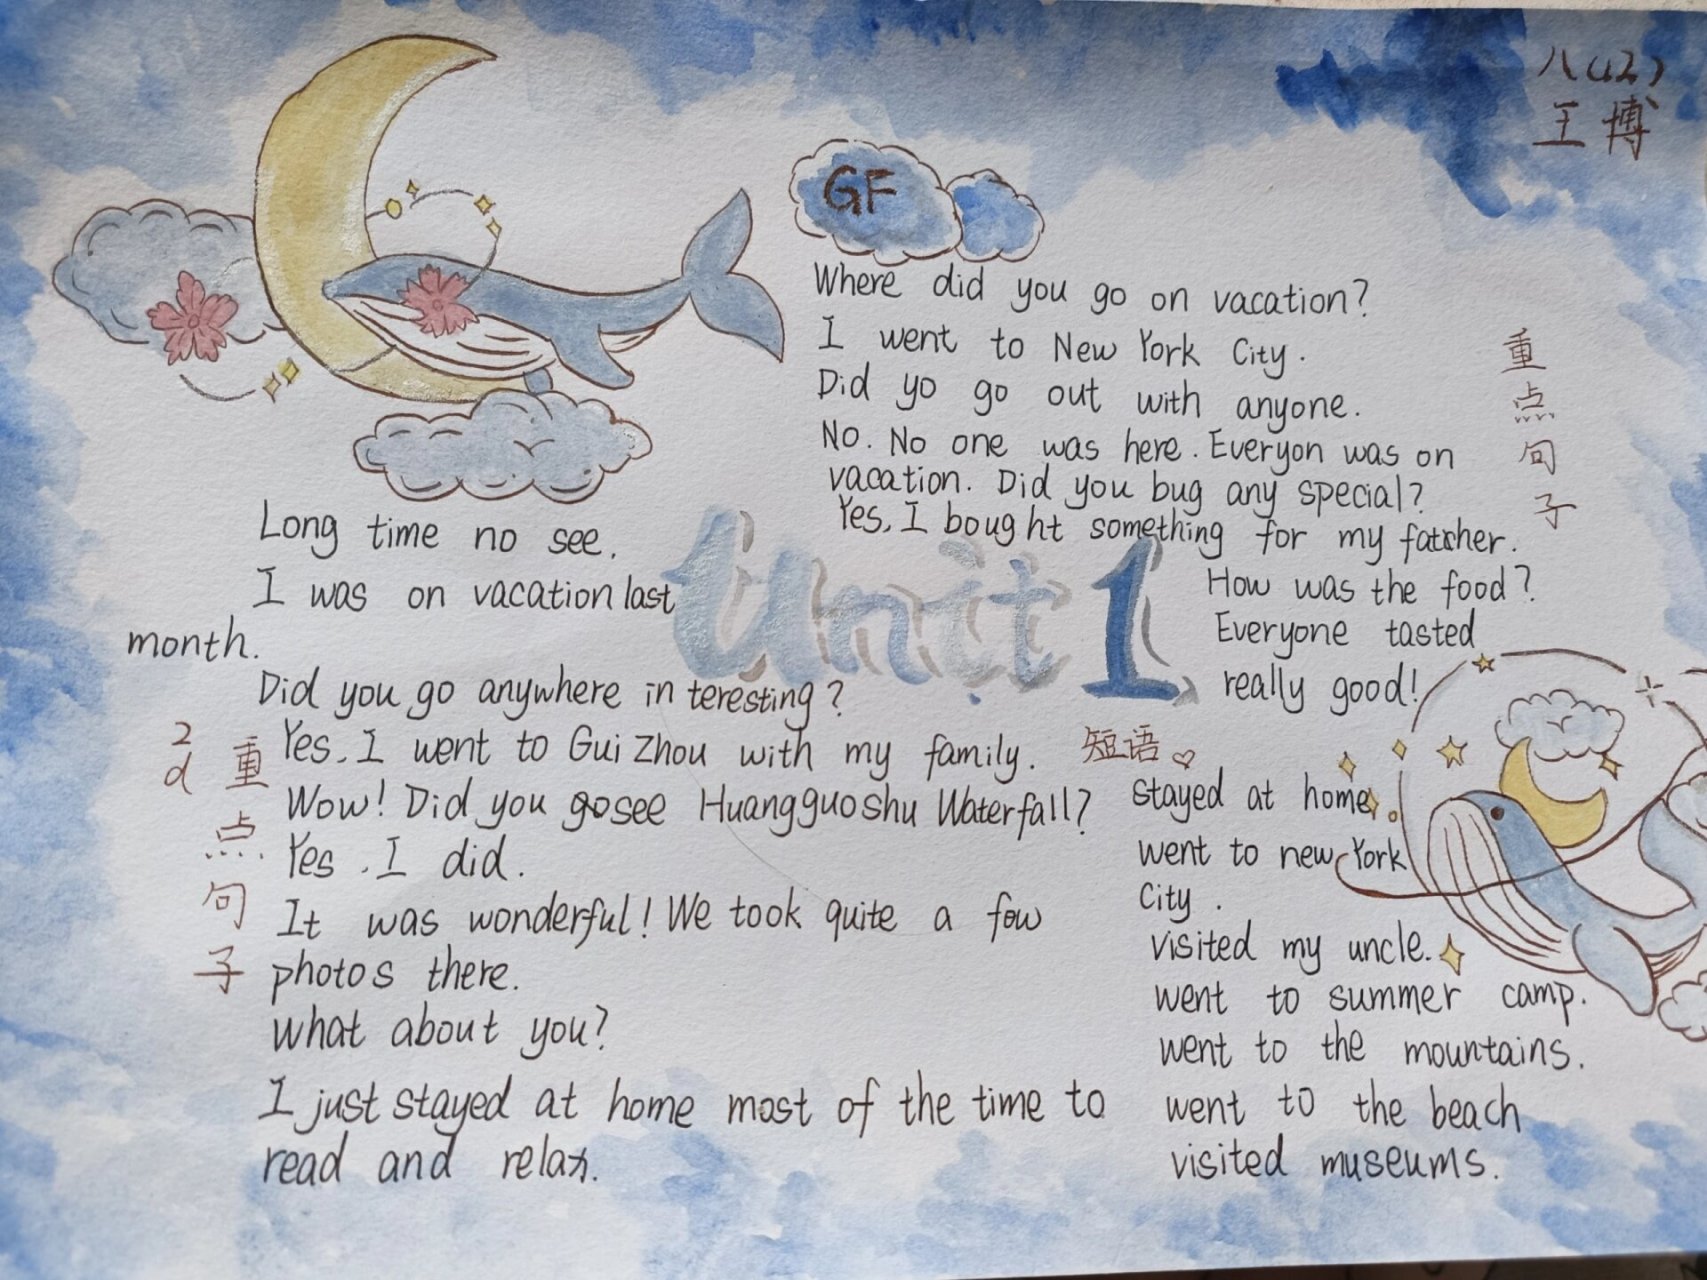 八(12)
王博
GF
Where did you go on vacation?
I went to New York City.
Did yo go out with anyone.
No. No one was here. Everyon was on
vacation. Did you bug any special?
Yes, I bought something for my fatcher.
How was the food?
Everyone tasted
really good!
重点句子
Unit 1
Long time no see.
I was on vacation last
month.
Did you go anywhere interesting?
Yes. I went to Gui Zhou with my family.
Wow! Did you go see Huangguoshu Waterfall?
Yes. I did.
It was wonderful! We took quite a few
photos there.
What about you?
I just stayed at home most of the time to
read and relax.
2d
重点句子
短语
stayed at home
went to new York
City.
visited my uncle.
went to summer camp.
went to the mountains.
went to the beach
visited museums.